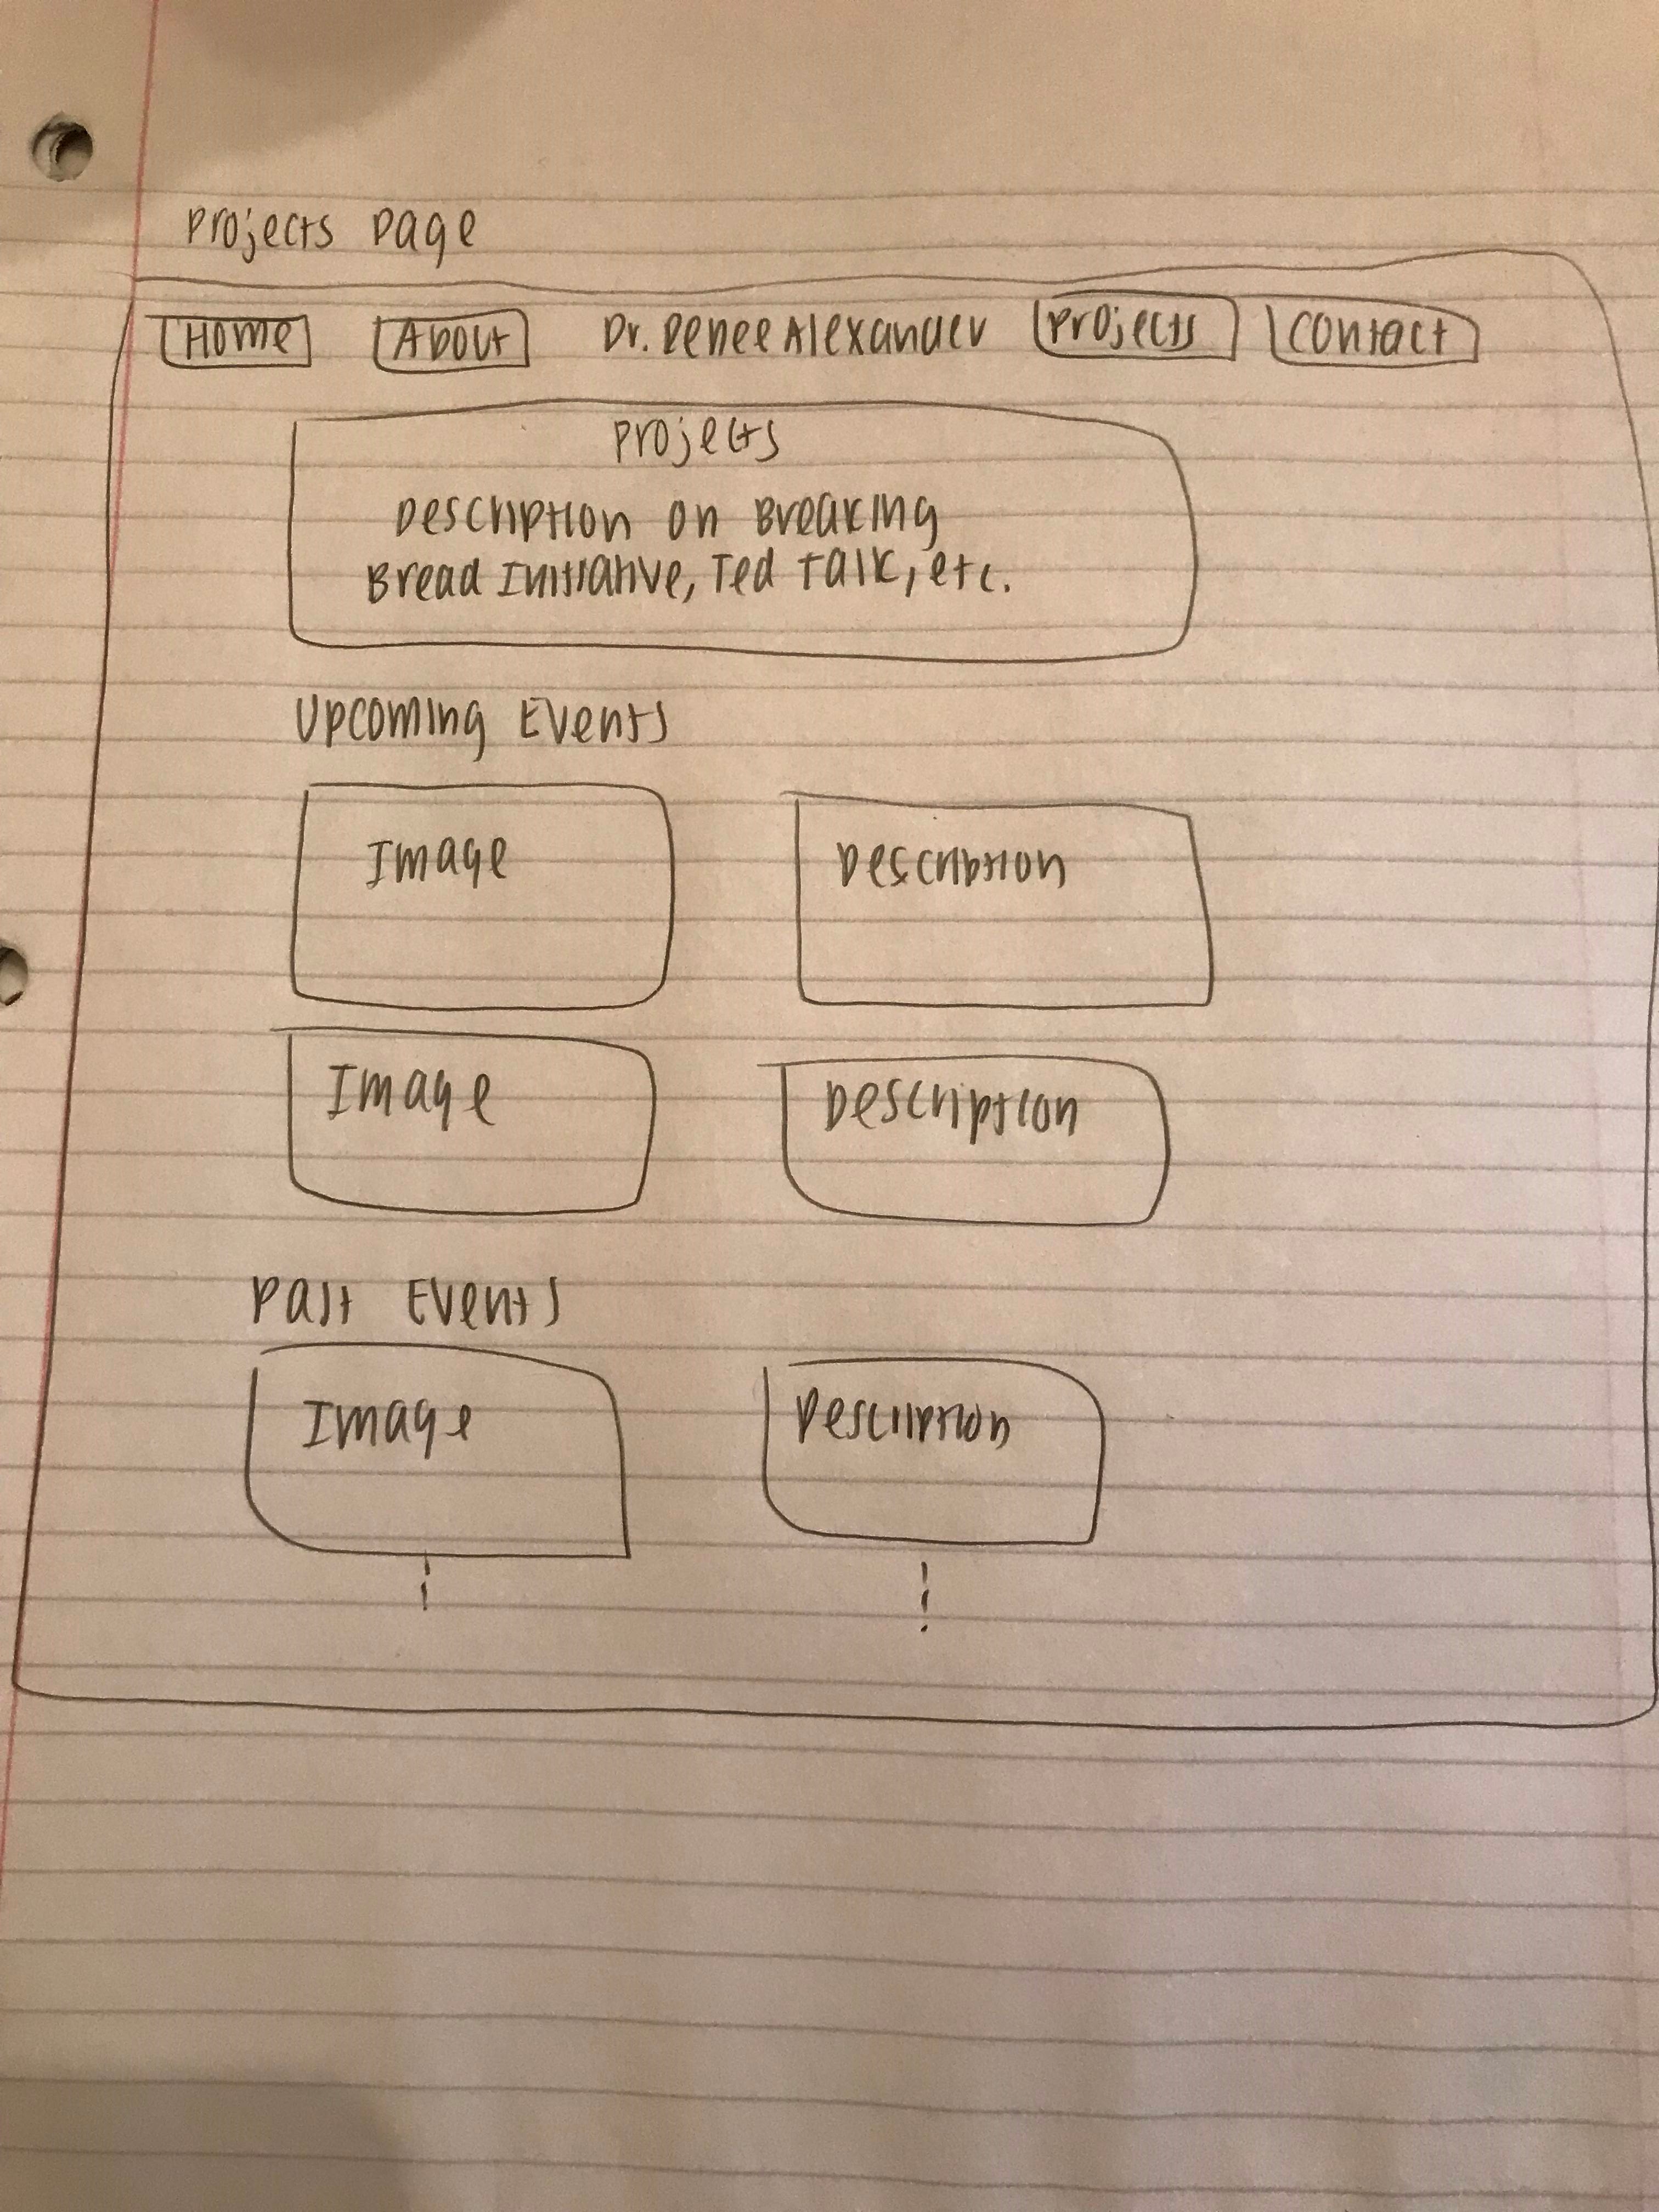 Projects Page
Home About Dr. Renee Alexander Projects Contact
Projects
Description on Breaking
Bread Initiative, Ted Talk, etc.
Upcoming Events
Image Description
Image Description
Past Events
Image Description